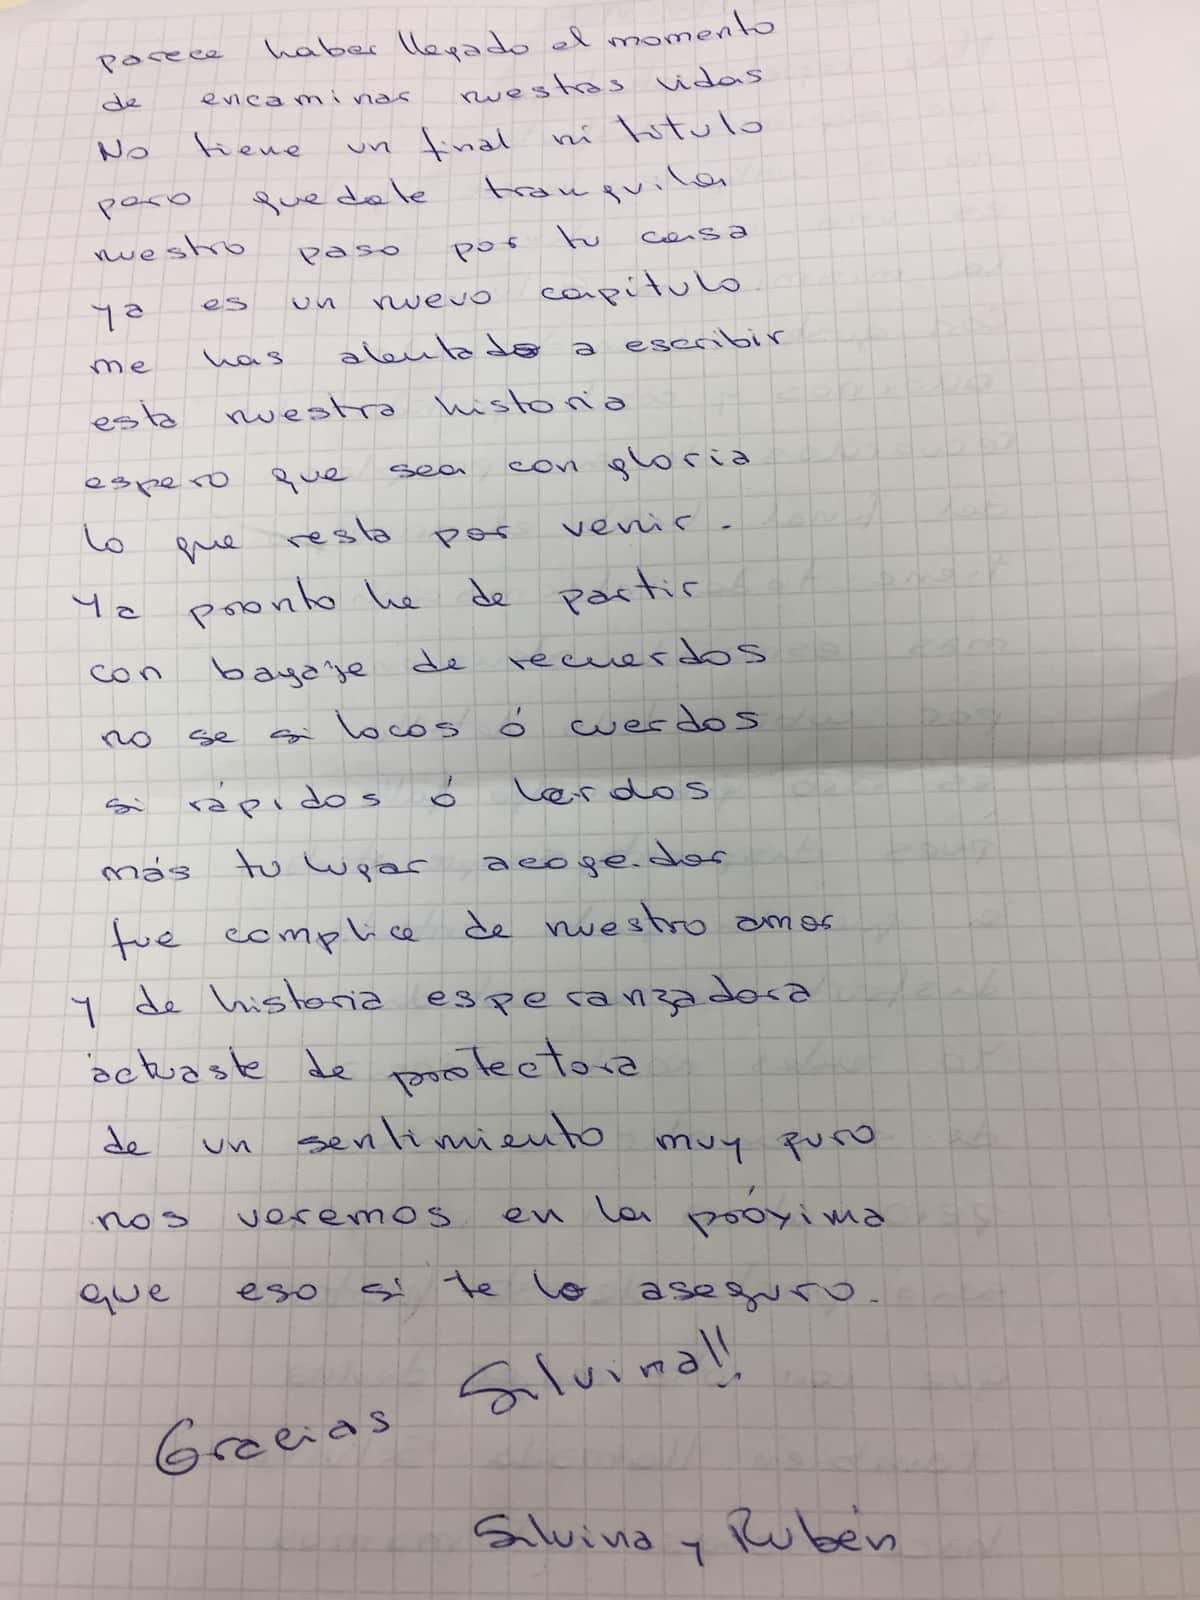 parece haber llegado el momento
de encaminar nuestras vidas
No tiene un final ni título
pero quedate tranquila
nuestro paso por tu casa
ya es un nuevo capítulo
me has alentado a escribir
esta nuestra historia
espero que sea con gloria
lo que resta por venir.
Ya pronto he de partir
con bagaje de recuerdos
no se si locos ó cuerdos
si rápidos ó lerdos
más tu lugar acogedor
fue complice de nuestro amor
y de historia esperanzadora
actuaste de protectora
de un sentimiento muy puro
nos veremos en la próxima
que eso si te lo aseguro.
Gracias Silvina!!
Silvina y Rubén